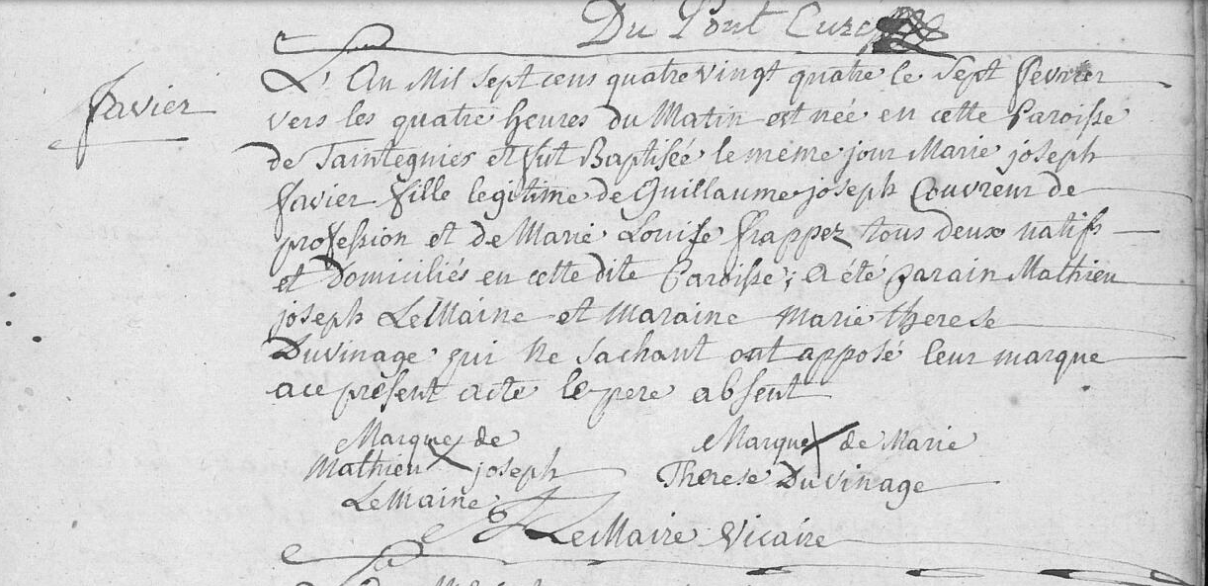 Du Pont Curé
Favier
L'An Mil Sept cens quatre vingt quatre le Sept fevrier
vers les quatre heures du Matin est née en cette Paroisse
de Taintegnies et fut Baptisée le meme jour Marie joseph
favier fille legitime de Guillaume joseph Couvreur de
profession et de Marie Louise frappez tous deux natifs
et domiciliés en cette dite Paroisse; a été Parain Mathieu
joseph LeMaine et Maraine Marie therese
Duvinage qui ne sachant ont apposé leur marque
a ce présent acte le pere absent
Marque de
Mathieu X joseph
LeMaine
Marque X de Marie
Therese Duvinage
LeMaire Vicaire